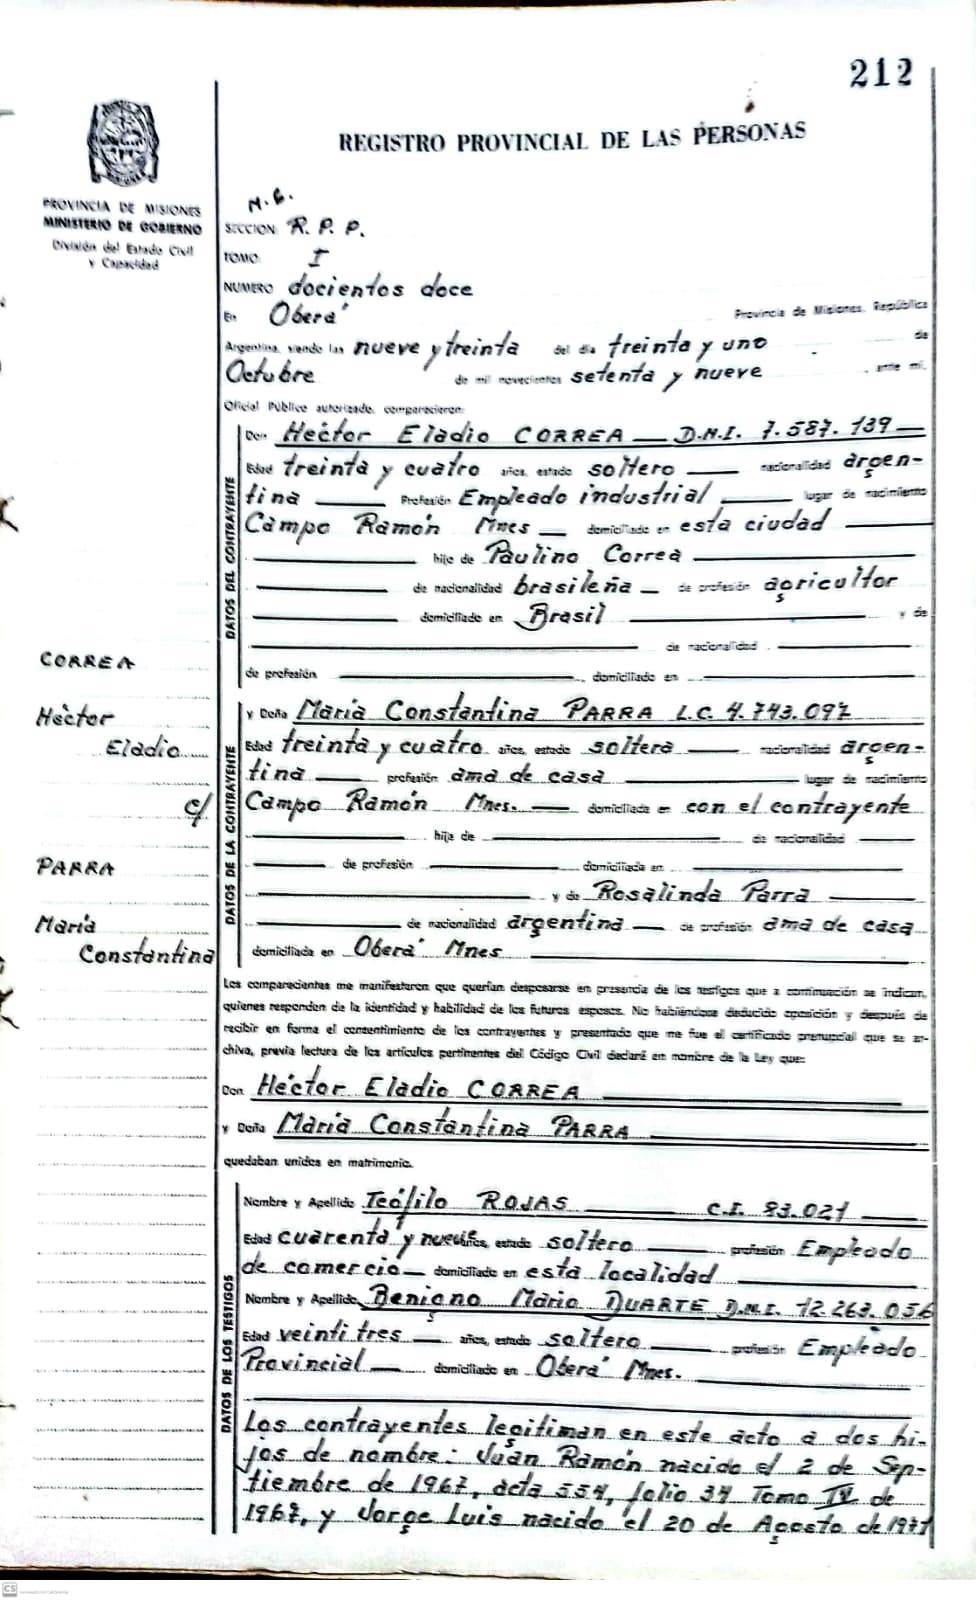 212
REGISTRO PROVINCIAL DE LAS PERSONAS
PROVINCIA DE MISIONES
MINISTERIO DE GOBIERNO
División del Estado Civil
y Capacidad
M.G.
SECCION R. P. P.
TOMO I
NUMERO docientos doce
En Oberá Provincia de Misiones, República
Argentina, siendo las nueve y treinta del día treinta y uno de
Octubre de mil novecientos setenta y nueve ante mí,
Oficial Público autorizado, comparecieron:
DATOS DEL CONTRAYENTE
Don Héctor Eladio CORREA D.N.I. 7.587.139
Edad treinta y cuatro años, estado soltero nacionalidad argen-
tina Profesión Empleado industrial lugar de nacimiento
Campo Ramón Mnes domiciliado en esta ciudad
hijo de Paulino Correa
de nacionalidad brasileña de profesión agricultor
domiciliado en Brasil y de
de nacionalidad
de profesión domiciliado en
CORREA
Héctor
Eladio
c/
PARRA
María
Constantina
DATOS DE LA CONTRAYENTE
y Doña María Constantina PARRA L.C. 4.743.097
Edad treinta y cuatro años, estado soltera nacionalidad argen-
tina profesión ama de casa lugar de nacimiento
Campo Ramón Mnes. domiciliada en con el contrayente
hija de de nacionalidad
de profesión domiciliada en
y de Rosalinda Parra
de nacionalidad argentina de profesión ama de casa
domiciliada en Oberá Mnes
Los comparecientes me manifestaron que querían desposarse en presencia de los testigos que a continuación se indican,
quienes responden de la identidad y habilidad de los futuros esposos. No habiéndose deducido oposición y después de
recibir en forma el consentimiento de los contrayentes y presentado que me fue el certificado prenupcial que se ar-
chiva, previa lectura de los artículos pertinentes del Código Civil declaré en nombre de la Ley que:
Don Héctor Eladio CORREA
y Doña María Constantina PARRA
quedaban unidos en matrimonio.
DATOS DE LOS TESTIGOS
Nombre y Apellido Teófilo ROJAS C.I. 83.021
Edad cuarenta y nueve años, estado soltero profesión Empleado
de comercio domiciliado en esta localidad
Nombre y Apellido Benigno Mario DUARTE D.N.I. 12.263.056
Edad veintitres años, estado soltero profesión Empleado
Provincial domiciliado en Oberá Mnes.
Los contrayentes legitiman en este acto a dos hi-
jos de nombre: Juan Ramón nacido el 2 de Sep-
tiembre de 1967, acta 554, folio 34 Tomo IV de
1967, y Jorge Luis nacido el 20 de Agosto de 1971
CS